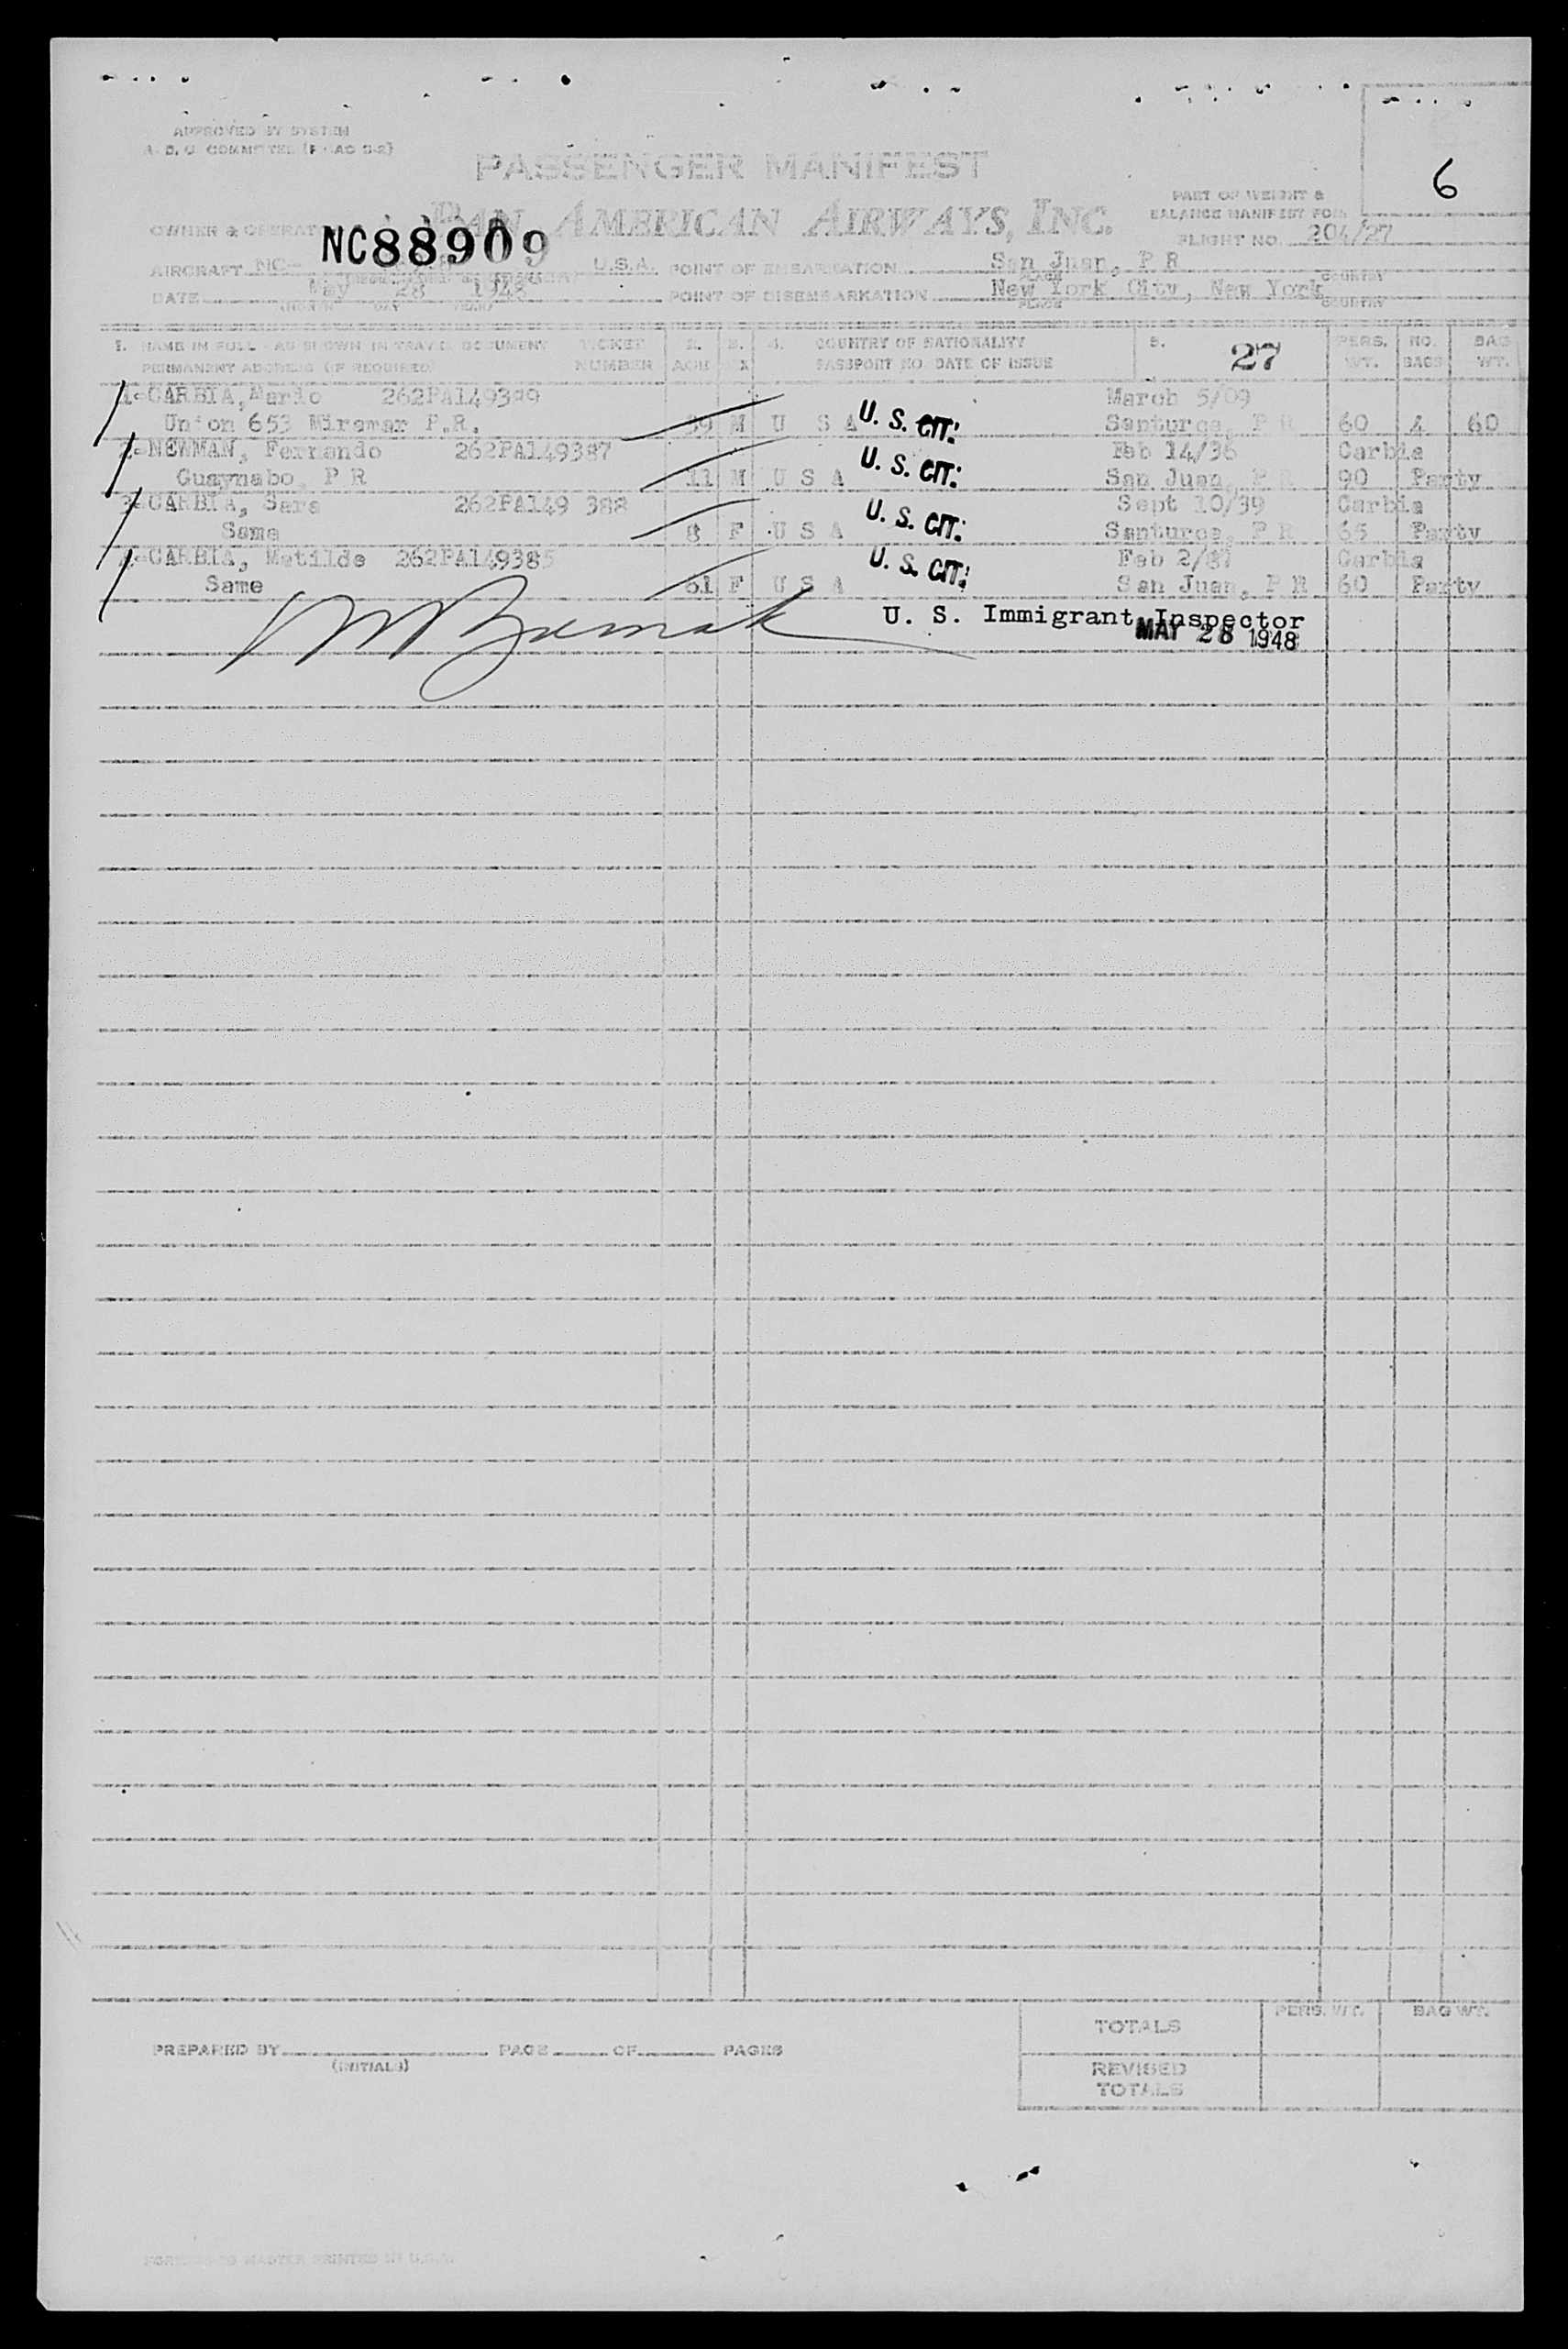 6
APPROVED BY SYSTEM
PASSENGER MANIFEST
PART OF WEIGHT &
BALANCE MANIFEST FOR
OWNER & OPERATOR PAN AMERICAN AIRWAYS, INC.
FLIGHT NO. 204/27
NC88909
AIRCRAFT NC- U.S.A. POINT OF EMBARKATION San Juan, P R
PLACE COUNTRY
DATE May 28 1948 POINT OF DISEMBARKATION New York City, New York
(MONTH DAY YEAR) PLACE COUNTRY
1. NAME IN FULL - AS SHOWN IN TRAVEL DOCUMENT TICKET 2. 3. 4. COUNTRY OF NATIONALITY 5. 27 PERS. NO. BAG
PERMANENT ADDRESS (IF REQUIRED) NUMBER AGE PASSPORT NO. DATE OF ISSUE WT. BAGS WT.
1-CARBIA, Mario March 5/09
Union 653 Miramar P.R. 39 M U S A U. S. CIT. Santurce, P R 60 4 60
2-NEWMAN, Fernando 262PA149387 Feb 14/36 Carbia
Guaynabo, P R 11 M U S A U. S. CIT. San Juan, P R 90 Party
3-CARBIA, Sara 262PA149 388 Sept 10/39 Carbia
Same 8 F U S A U. S. CIT. Santurce, P R 65 Party
4-CARBIA, Matilde 262PA149385 Feb 2/87 Carbia
Same 61 F U S A U. S. CIT. San Juan, P R 60 Party
U. S. Immigrant Inspector
MAY 28 1948
PERS. WT. BAG WT.
TOTALS
PREPARED BY PAGE OF PAGES
(INITIALS)
REVISED
TOTALS